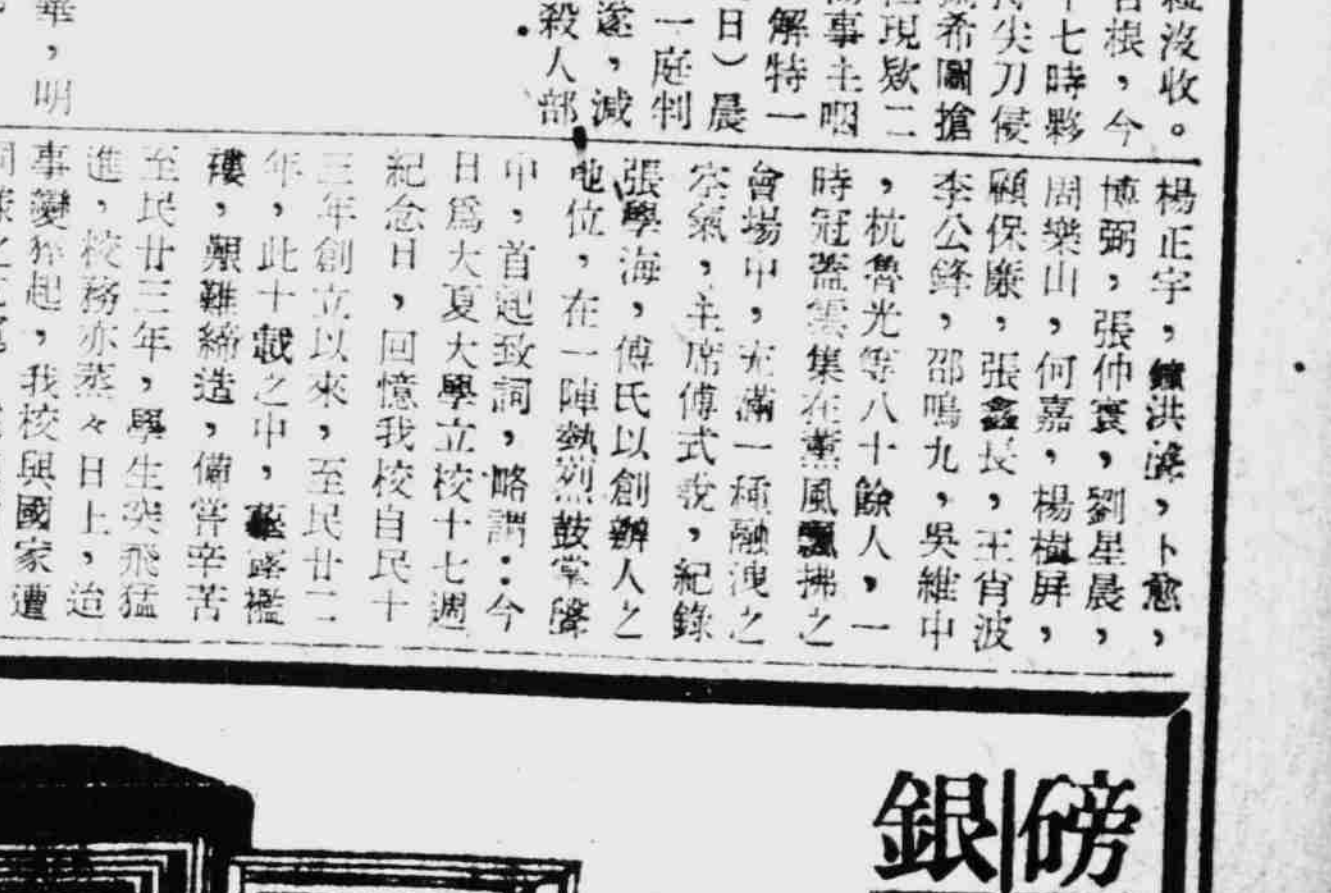 粒沒收。
根，今
七時夥
尖刀侵
希圖搶
現欵二
事主咽
解特一
日）晨
一庭判
遂，減
殺人部
.
華，明
楊正宇，洪，卜愈，
博弼，張仲寰，劉星晨，
周樂山，何嘉，楊樹屏，
顧保廉，張鑫長，王肖波
李公鋒，邵鳴九，吳維中
，杭魯光等八十餘人，一
時冠蓋雲集在薰風飄拂之
會場中，充滿一種融洩之
空氣，主席傅式說，紀錄
張學海，傅氏以創辦人之
地位，在一陣熱烈鼓掌聲
中，首起致詞，略謂：今
日爲大夏大學立校十七週
紀念日，回憶我校自民十
三年創立以來，至民廿二
年，此十載之中，蓽露襤
褸，艱難締造，備嘗辛苦
至民廿三年，學生突飛猛
進，校務亦蒸々日上，迨
事變猝起，我校與國家遭
銀|磅